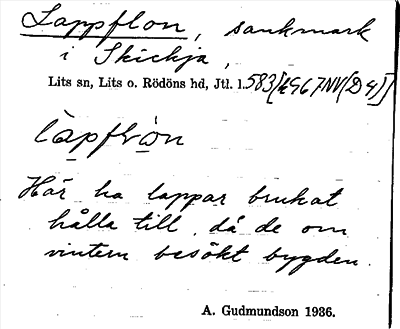 Lappflon, sankmark
i Skickja,
Lits sn, Lits o. Rödöns hd, Jtl. l. 583[19G 7NV(D 4)]
Här ha lappar brukat
hålla till, då de om
vintern besökt bygden.
A. Gudmundson 1936.